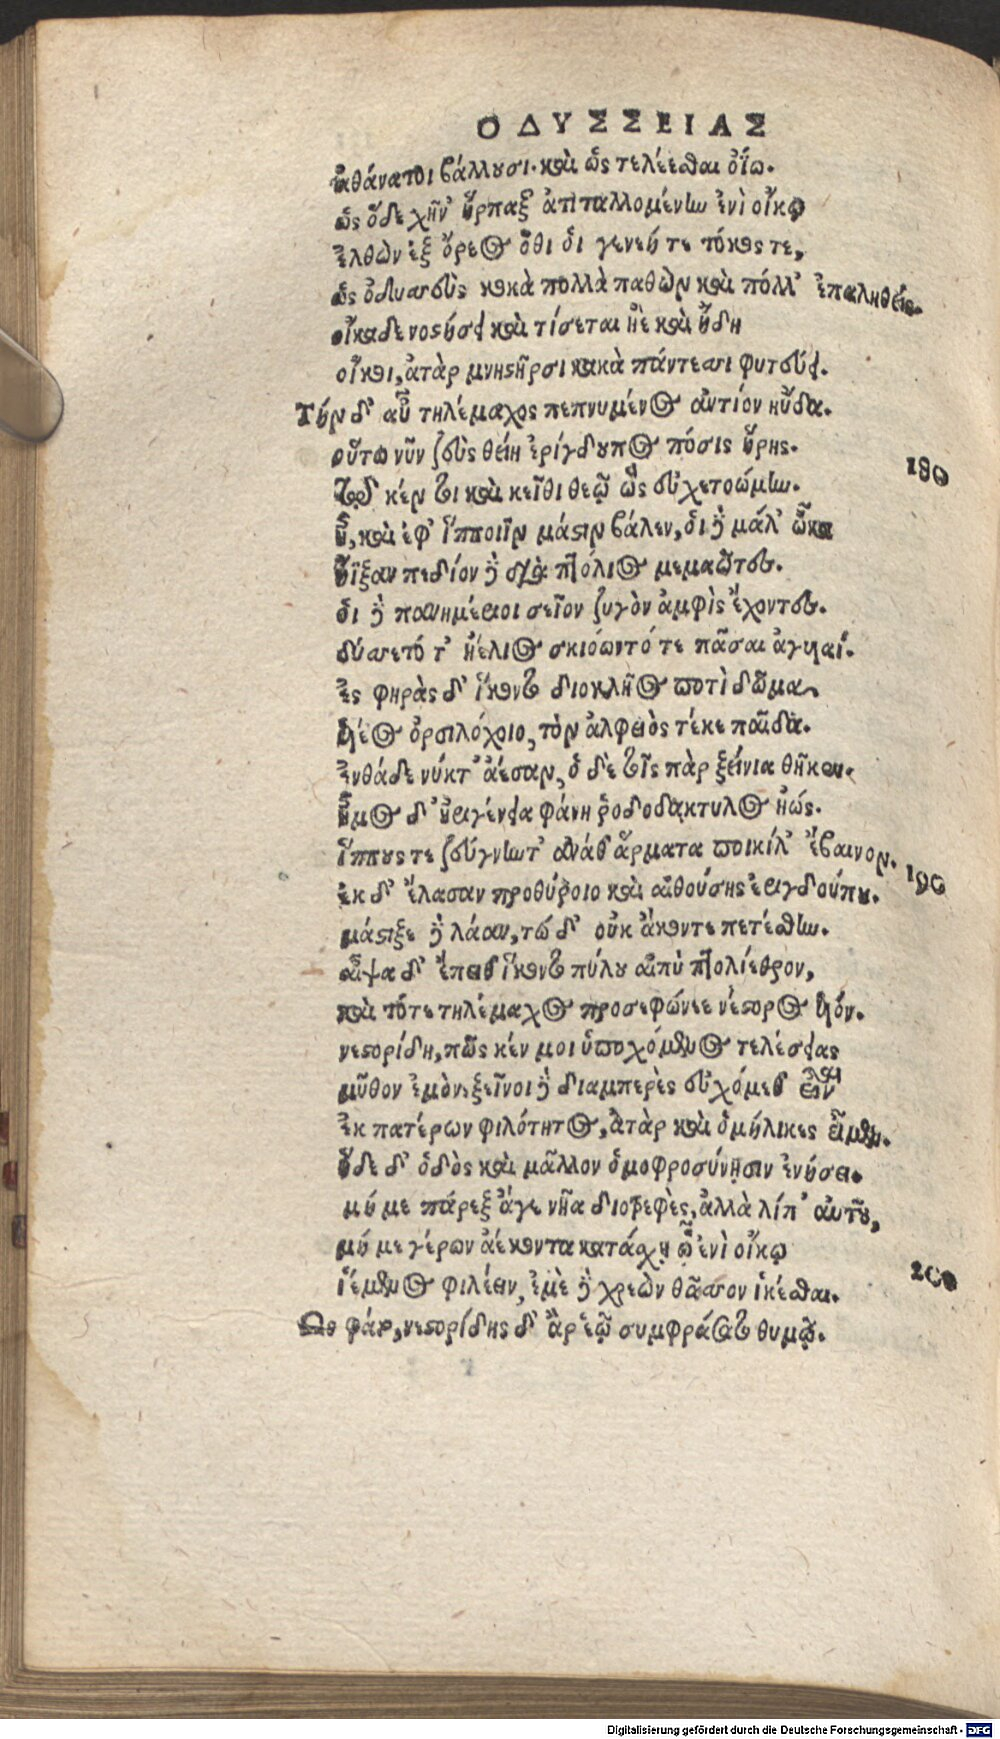 ΟΔΥΣΣΕΙΑΣ
ἀθάνατοι βάλλουσι· καὶ ὡς τελέεσθαι ὀΐω.
ὡς ὅδε χῆν' ἥρπαξ' ἀτιταλλομένην ἐνὶ οἴκῳ
ἐλθὼν ἐξ ὄρεος ὅθι οἱ γενεή τε τόκος τε,
ὡς ὀδυσσεὺς κακὰ πολλὰ παθὼν καὶ πόλλ' ἐπαληθείς.
οἴκαδε νοστήσει καὶ τίσεται ἠὲ καὶ ἤδη
οἴκοι, ἀτὰρ μνηστῆρσι κακὰ πάντεσσι φυτεύει.
Τὴν δ' αὖ τηλέμαχος πεπνυμένος ἀντίον ηὔδα.
οὕτω νῦν ζεὺς θείη ἐρίγδουπος πόσις ἥρης.
τῷ κέν τοι καὶ κεῖθι θεῷ ὣς εὐχετοώμην.
180
ἦ, καὶ ἐφ' ἵπποιϊν μάστιν βάλεν, οἱ δὲ μάλ' ὦκα
ἤϊξαν πεδίον δὲ διὰ πτόλιος μεμαῶτες.
οἱ δὲ πανημέριοι σεῖον ζυγὸν ἀμφὶς ἔχοντες.
δύσετό τ' ἠέλιος σκιόωντό τε πᾶσαι ἀγυιαί.
ἐς φηρὰς δ' ἵκοντο διοκλῆος ποτὶ δῶμα
υἱέος ὀρσιλόχοιο, τὸν ἀλφειὸς τέκε παῖδα.
ἐνθάδε νύκτ' ἀέσαν, ὁ δὲ τοῖς πὰρ ξείνια θῆκεν.
ἦμος δ' ἠριγένεια φάνη ῥοδοδάκτυλος ἠώς.
ἵππους τε ζεύγνυντ' ἀνάθ' ἅρματα ποικίλ' ἔβαινον.
190
ἐκ δ' ἔλασαν προθύροιο καὶ αἰθούσης ἐριγδούπου.
μάστιξε δὲ λάαν, τώ δ' οὐκ ἄκοντε πετέσθην.
αἶψα δ' ἔπειθ' ἵκοντο πύλου αἰπὺ πτολίεθρον,
καὶ τότε τηλέμαχος προσεφώνεε νέστορος υἱόν.
νεστορίδη, πῶς κέν μοι ὑποχόμενος τελέσειας
μῦθον ἐμὸν, ξεῖνοι δὲ διαμπερὲς εὐχόμεθ' εἶναι
ἐκ πατέρων φιλότητος, ἀτὰρ καὶ ὁμήλικες εἰμέν.
ἥδε δ' ὁδὸς καὶ μᾶλλον ὁμοφροσύνῃσιν ἐνήσει.
μή με πάρεξ ἄγε νῆα διοτρεφὲς, ἀλλὰ λίπ' αὐτοῦ,
μή με γέρων ἀέκοντα κατάσχῃ ᾧ ἐνὶ οἴκῳ
200
ἱέμενος φιλέειν, ἐμὲ δὲ χρεὼν θᾶσσον ἱκέσθαι.
Ὣς φάτ', νεστορίδης δ' ἄρ' ἑῷ συμφράσσατο θυμῷ.
Digitalisierung gefördert durch die Deutsche Forschungsgemeinschaft - DFG